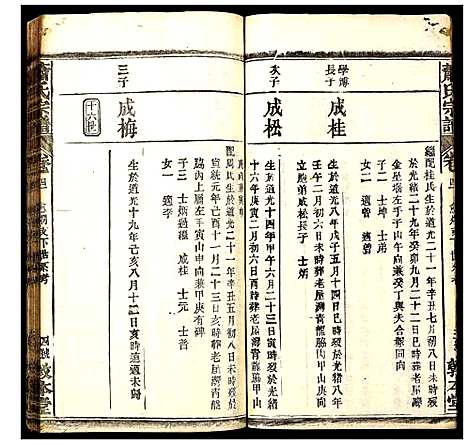 蕭氏宗譜
繼配桂氏生於道光二十一年辛丑七月初八日未時歿
於光緒二十九年癸卯九月二十日
金星塘左手子山午向兼癸丁與夫合塚同向
子二 士坤 士弟
女二 一適曾 一適
學博長子
成桂
生於道光八年戊子五月十四日巳時歿於光緒八年
壬午二月初六日未時葬老屋灣青龍腦丙山甲向
立胞弟成松長子 士炳
次子
成松
生於道光十四年甲午六月二十三日寅時歿於光緒
十六年庚寅二月初三日
配周氏生於道光二十一年辛丑五月初八日未時歿於
宣統元年己酉十月初八日亥時葬老屋灣青龍
腦內上層左手寅山申向兼甲庚有碑
子三 士炳過繼 成桂 士元 士晉
女一 適李
三子
成梅
十六世
生於道光十九年己亥八月十二日亥時適遠未歸
蕭氏宗譜
敦本堂